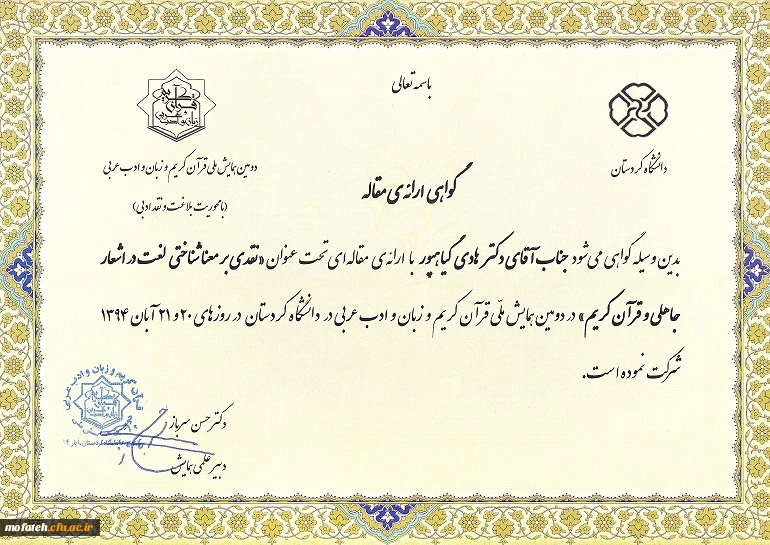 باسمه تعالی
دانشگاه کردستان
قرآن کریم
زبان و ادب عربی
دومین همایش ملی قرآن کریم و زبان و ادب عربی
(با محوریت بلاغت و نقد ادبی)
گواهی ارائه‌ی مقاله
بدین وسیله گواهی می‌شود جناب آقای دکتر هادی گیاهپور با ارائه‌ی مقاله‌ای تحت عنوان «نقدی بر معناشناختی لغت در اشعار
جاهلی و قرآن کریم» در دومین همایش ملّی قرآن کریم و زبان و ادب عربی در دانشگاه کردستان در روزهای ۲۰ و ۲۱ آبان ۱۳۹۴
شرکت نموده است.
دکتر حسن سرباز
دبیر علمی همایش
قرآن کریم و زبان و ادب عربی
mofateh.cfu.ac.ir